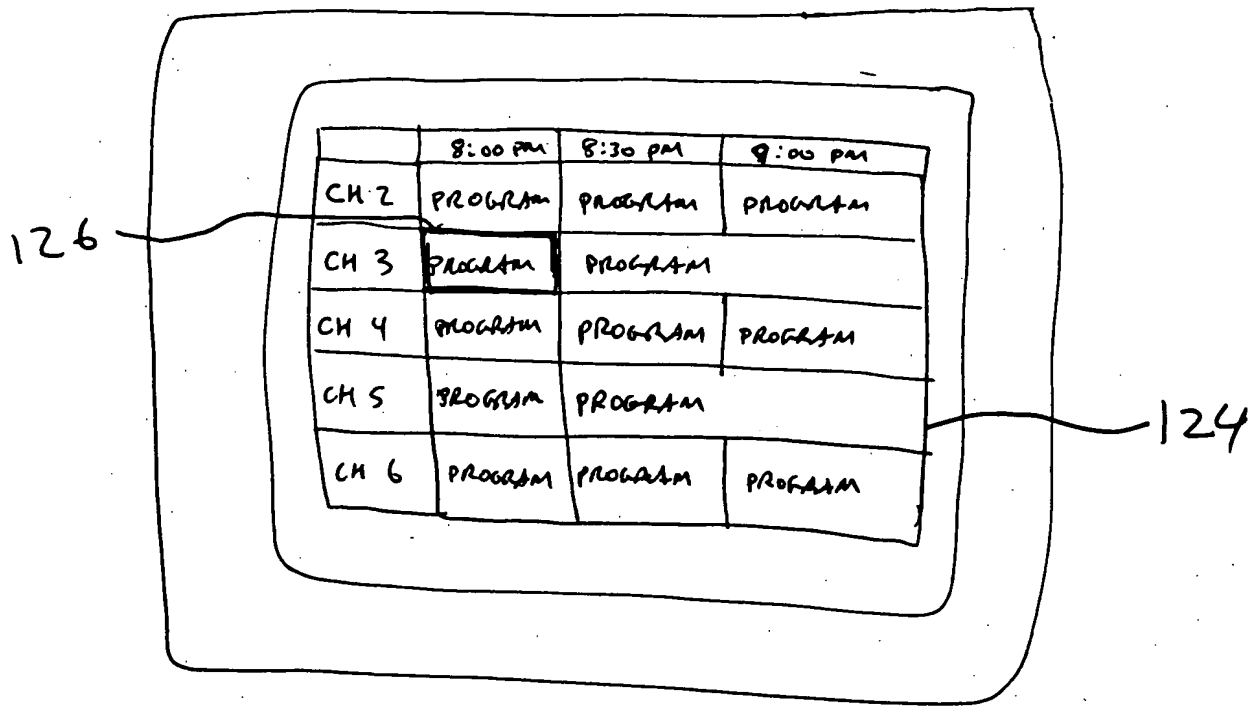 8:00 PM 8:30 PM 9:00 PM
CH 2 PROGRAM PROGRAM PROGRAM
126
CH 3 PROGRAM PROGRAM
CH 4 PROGRAM PROGRAM PROGRAM
CH 5 PROGRAM PROGRAM
124
CH 6 PROGRAM PROGRAM PROGRAM